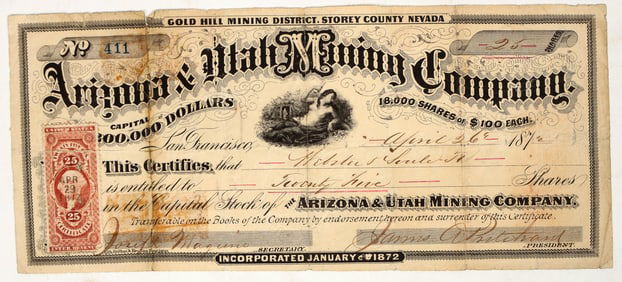 GOLD HILL MINING DISTRICT. STOREY COUNTY NEVADA
No. 411
25 SHARES
Arizona & Utah Mining Company.
CAPITAL
300,000 DOLLARS
18,000 SHARES OF $100 EACH.
San Francisco, April 26th 187
This Certifies, that
is entitled to Twenty Five Shares
in the Capital Stock of THE ARIZONA & UTAH MINING COMPANY.
Transferable on the Books of the Company by endorsement hereon and surrender of this Certificate.
Joseph Maguire
SECRETARY.
James
PRESIDENT.
INCORPORATED JANUARY 1872
25 25
APR
29
CERTIFICATE
INTER. REVENUE